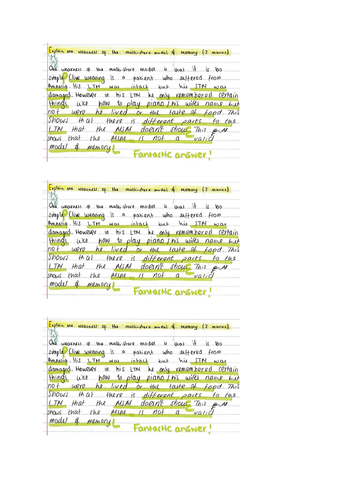 Explain one weakness of the multi-store model of memory (2 marks).
One weakness of the multi-store model is that it is too
simple. Clive wearing is a patient who suffered from
Amnesia. His LTM was intact but his STM was
damaged. However in his LTM he only remembered certain
things like how to play piano, his wifes name but
not were he lived or the taste of food. This
shows that there is different parts to the
LTM that the MSM doesn't show. This
shows that the MSM is not a valid
model of memory!
Fantastic answer!
Explain one weakness of the multi-store model of memory (2 marks).
One weakness of the multi-store model is that it is too
simple. Clive wearing is a patient who suffered from
Amnesia. His LTM was intact but his STM was
damaged. However in his LTM he only remembered certain
things like how to play piano, his wifes name but
not were he lived or the taste of food. This
shows that there is different parts to the
LTM that the MSM doesn't show. This
shows that the MSM is not a valid
model of memory!
Fantastic answer!
Explain one weakness of the multi-store model of memory (2 marks).
One weakness of the multi-store model is that it is too
simple. Clive wearing is a patient who suffered from
Amnesia. His LTM was intact but his STM was
damaged. However in his LTM he only remembered certain
things like how to play piano, his wifes name but
not were he lived or the taste of food. This
shows that there is different parts to the
LTM that the MSM doesn't show. This
shows that the MSM is not a valid
model of memory!
Fantastic answer!